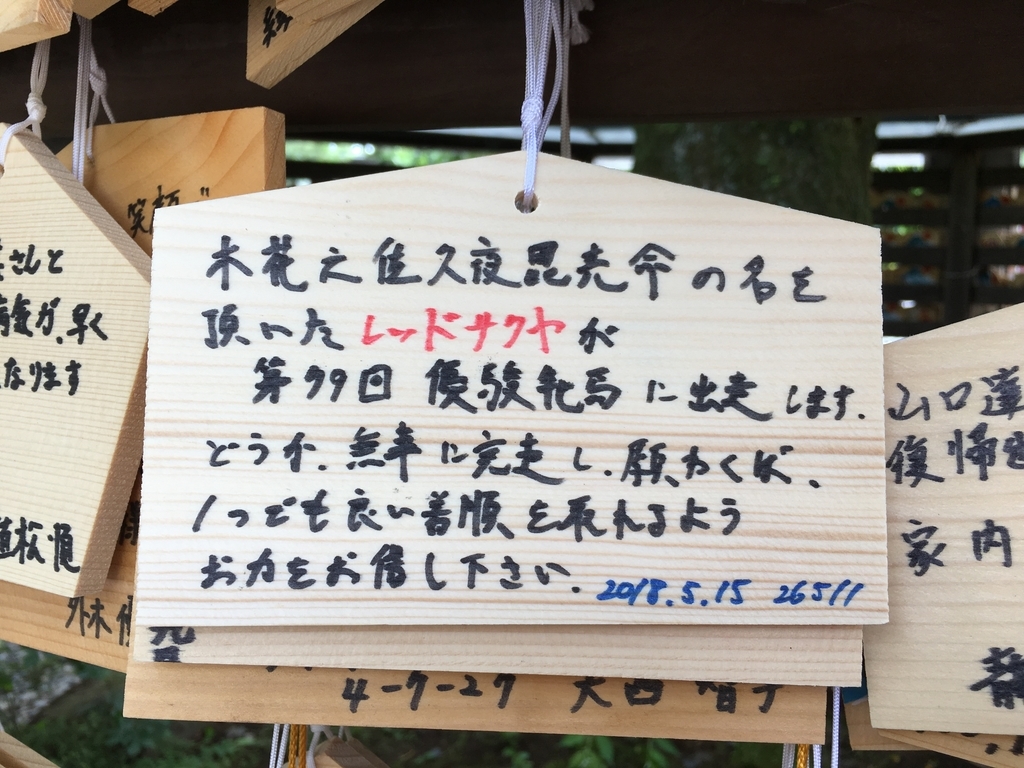 木花之佐久夜毘売命の名を
頂いたレッドサクヤが
第79回 優駿牝馬に出走します.
どうか、無事に完走し、願わくば、
1つでも良い着順を取れるよう
お力をお借し下さい.
2018.5.15 26511
笑顔
さんと
病気が、早く
なります
植松
外木
4-7-27 大西 智子
山口達
復帰
家内